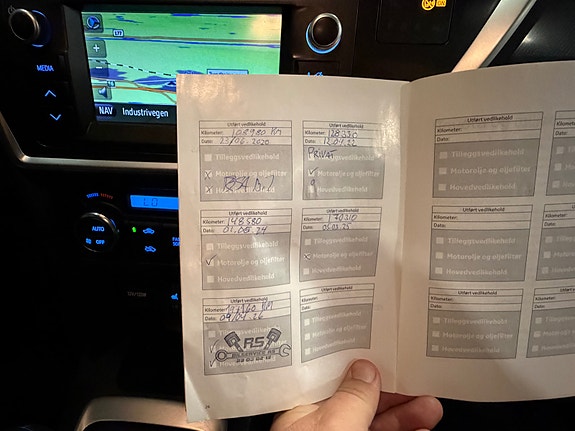 177
MEDIA
NAV
Industrivegen
AUTO
OFF
LO
Utført vedlikehold
Kilometer: 108980 KM
Dato: 23/06.2020
Tilleggsvedlikehold
Motorolje og oljefilter
Hovedvedlikehold
Utført vedlikehold
Kilometer: 128350
Dato: 12.04.22
PRIVAT
Motorolje og oljefilter
Hovedvedlikehold
Utført vedlikehold
Kilometer:
Dato:
Tilleggsvedlikehold
Motorolje og oljefilter
Hovedvedlikehold
Utført vedlikehold
Kilometer: 148580
Dato: 01.05.24
Tilleggsvedlikehold
Motorolje og oljefilter
Hovedvedlikehold
Utført vedlikehold
Kilometer: 170210
Dato:
Motorolje og oljefilter
Hovedvedlikehold
Utført vedlikehold
Kilometer:
Tilleggsvedlikehold
Motorolje og oljefilter
Hovedvedlikehold
Utført vedlikehold
Kilometer:
Dato:
RS
BILSERVICE AS
Utført vedlikehold
Kilometer:
Dato:
Tilleggsvedlikehold
Motorolje og oljefilter
Hovedvedlikehold
Utført vedlikehold
Kilometer:
Dato:
Tilleggsvedlikehold
Motorolje og oljefilter
Hovedvedlikehold